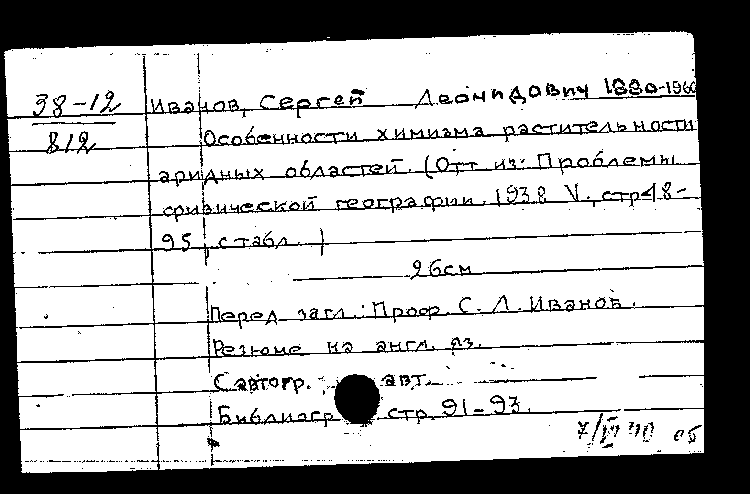 38-12
812
Иванов, Сергей Леонидович 1880-1960
Особенности химизма растительности
аридных областей. (Отт из: Проблемы
физической географии. 1938 V., стр 48-
95, с табл. )
26см
Перед загл.: Проф. С. Л. Иванов.
Резюме на англ. яз.
С автогр. авт.
Библиогр стр. 91-93.
7/IV 40 об